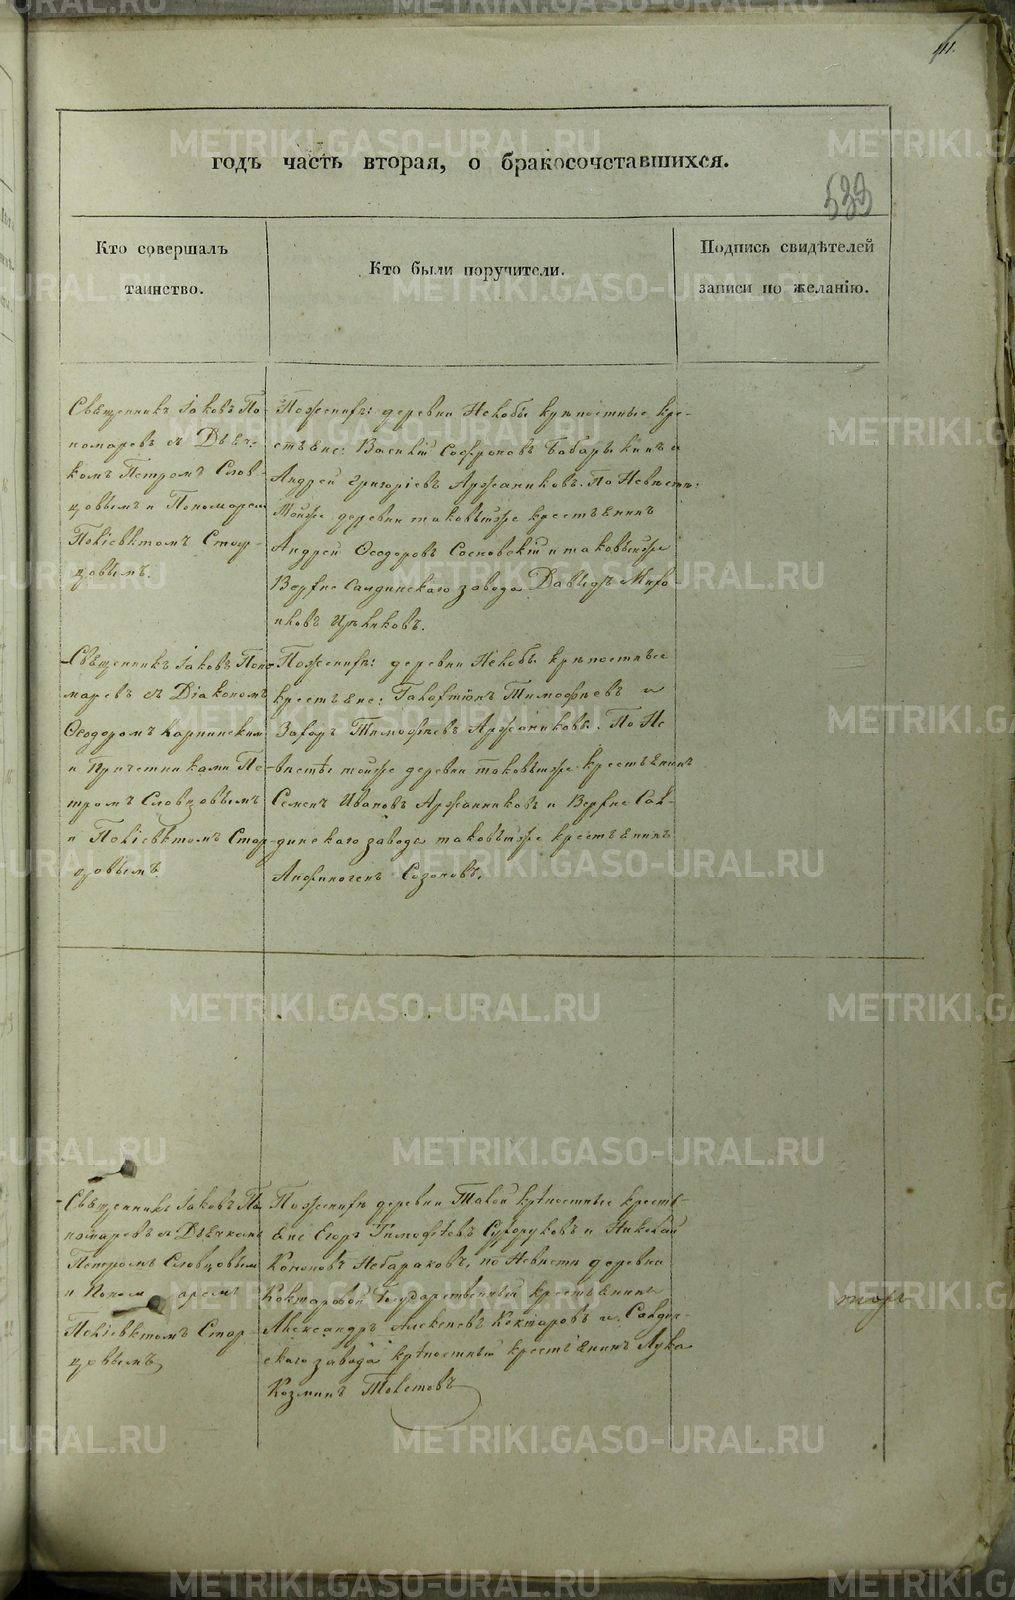 111.
годъ часть вторая, о бракосочетавшихся.
533
Кто совершалъ
таинство.
Кто были поручители.
Подпись свидѣтелей
записи по желанію.
Священникъ Іаковъ По-
номаревъ съ Дьяч-
комъ Петромъ Слов-
цовымъ и Пономаремъ
Поліевктомъ Стар-
цовымъ.
По женихѣ: деревни крѣпостные кре-
стьяне: Василій Софроновъ Бабарыкинъ и
Андрей Григоріевъ Аржанниковъ. По Невѣстѣ:
Той же деревни таковый же крестьянинъ
Андрей Ѳеодоровъ Сосновскій и таковый же
Верхне Салдинскаго завода Давыдъ Миро-
новъ
Священникъ Іаковъ Поно-
маревъ съ Діакономъ
Ѳеодоромъ Карпинскимъ
и Причетниками Пе-
тромъ Словцовымъ
и Поліевктомъ Стар-
цовымъ
По женихѣ: деревни крѣпостные
крестьяне: Галактіонъ Тимофѣевъ и
Захаръ Тимофѣевъ Аржанниковы. По Не-
вѣстѣ той же деревни таковый же крестьянинъ
Семенъ Ивановъ Аржанниковъ и Верхне Сал-
динскаго завода таковый же крестьянинъ
Анфиногенъ Созоновъ.
Священникъ Іаковъ По-
номаревъ съ Дьячкомъ
Петромъ Словцовымъ
и Пономаремъ
Поліевктомъ Стар-
цовымъ
По женихѣ деревни крѣпостные кресть-
яне Егоръ Тимофѣевъ Сухоруковъ и Николай
Кононовъ по Невѣстѣ деревни
Государственный крестьянинъ
Александръ Алексѣевъ и Салдин-
скаго завода крѣпостный крестьянинъ Лука
Козминъ
METRIKI.GASO-URAL.RU